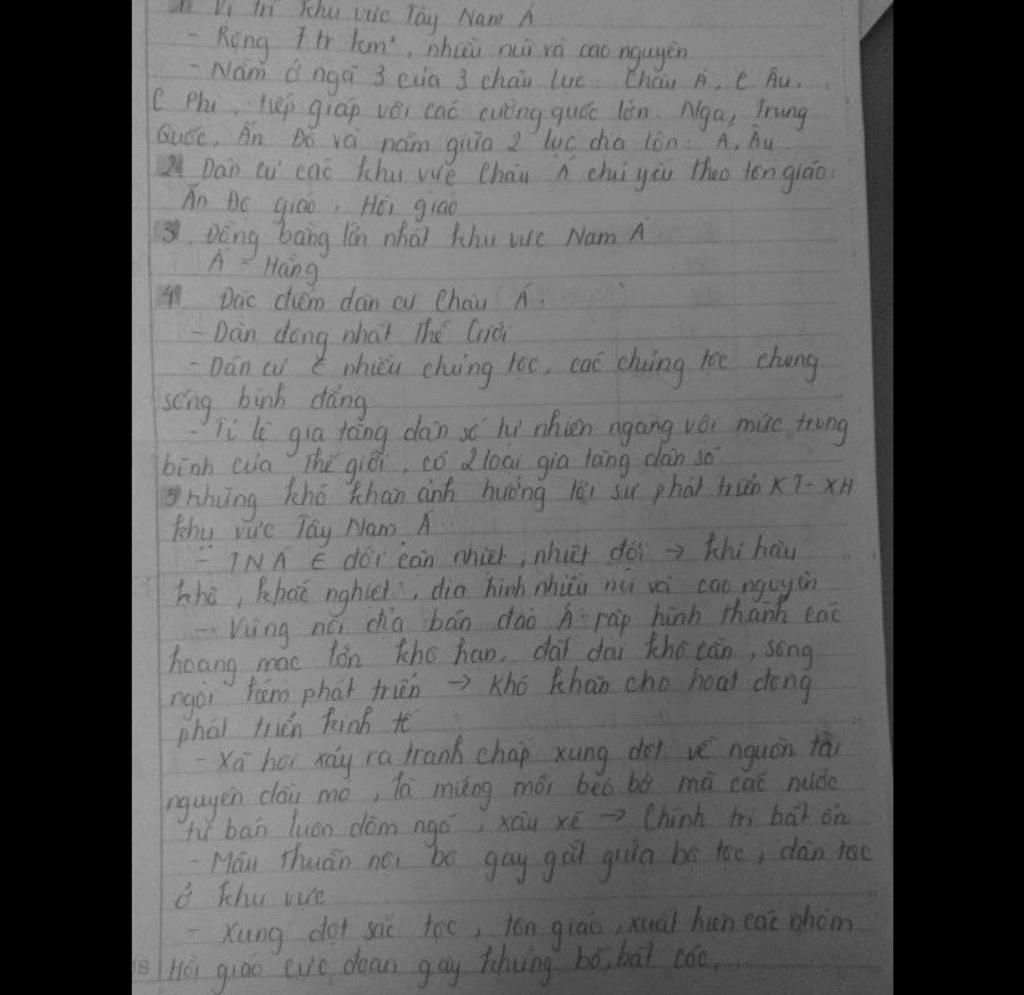 1. Vị trí khu vực Tây Nam Á
- Rộng 7 tr km², nhiều núi và cao nguyên
- Nằm ở ngã 3 của 3 châu lục: Châu Á, C Âu,
C Phi, tiếp giáp với các cường quốc lớn: Nga, Trung
Quốc, Ấn Độ và nằm giữa 2 lục địa lớn: Á, Âu
2. Dân cư các khu vực Châu Á chủ yếu theo tôn giáo:
Ấn Độ giáo, Hồi giáo
3. Đồng bằng lớn nhất khu vực Nam Á
Ấ - Hằng
4. Đặc điểm dân cư Châu Á:
- Dân đông nhất Thế Giới
- Dân cư ∈ nhiều chủng tộc, các chủng tộc chung
sống bình đẳng
- Tỉ lệ gia tăng dân số tự nhiên ngang với mức trung
bình của Thế giới, có 2 loại gia tăng dân số
5. Những khó khăn ảnh hưởng tới sự phát triển KT-XH
khu vực Tây Nam Á
- TNÁ ∈ đới cận nhiệt, nhiệt đới → khí hậu
khô, khắc nghiệt, địa hình nhiều núi và cao nguyên
- Vùng nội địa bán đảo Á-rập hình thành các
hoang mạc lớn khô hạn, đất đai khô cằn, sông
ngòi kém phát triển → khó khăn cho hoạt động
phát triển kinh tế
- Xã hội xảy ra tranh chấp xung đột về nguồn tài
nguyên dầu mỏ, là miếng mồi béo bở mà các nước
tư bản luôn dòm ngó, xâu xé → Chính trị bất ổn
- Mâu thuẫn nội bộ gay gắt giữa bộ tộc, dân tộc
ở khu vực
- Xung đột sắc tộc, tôn giáo, xuất hiện các nhóm
Hồi giáo cực đoan gây khủng bố, bắt cóc,...